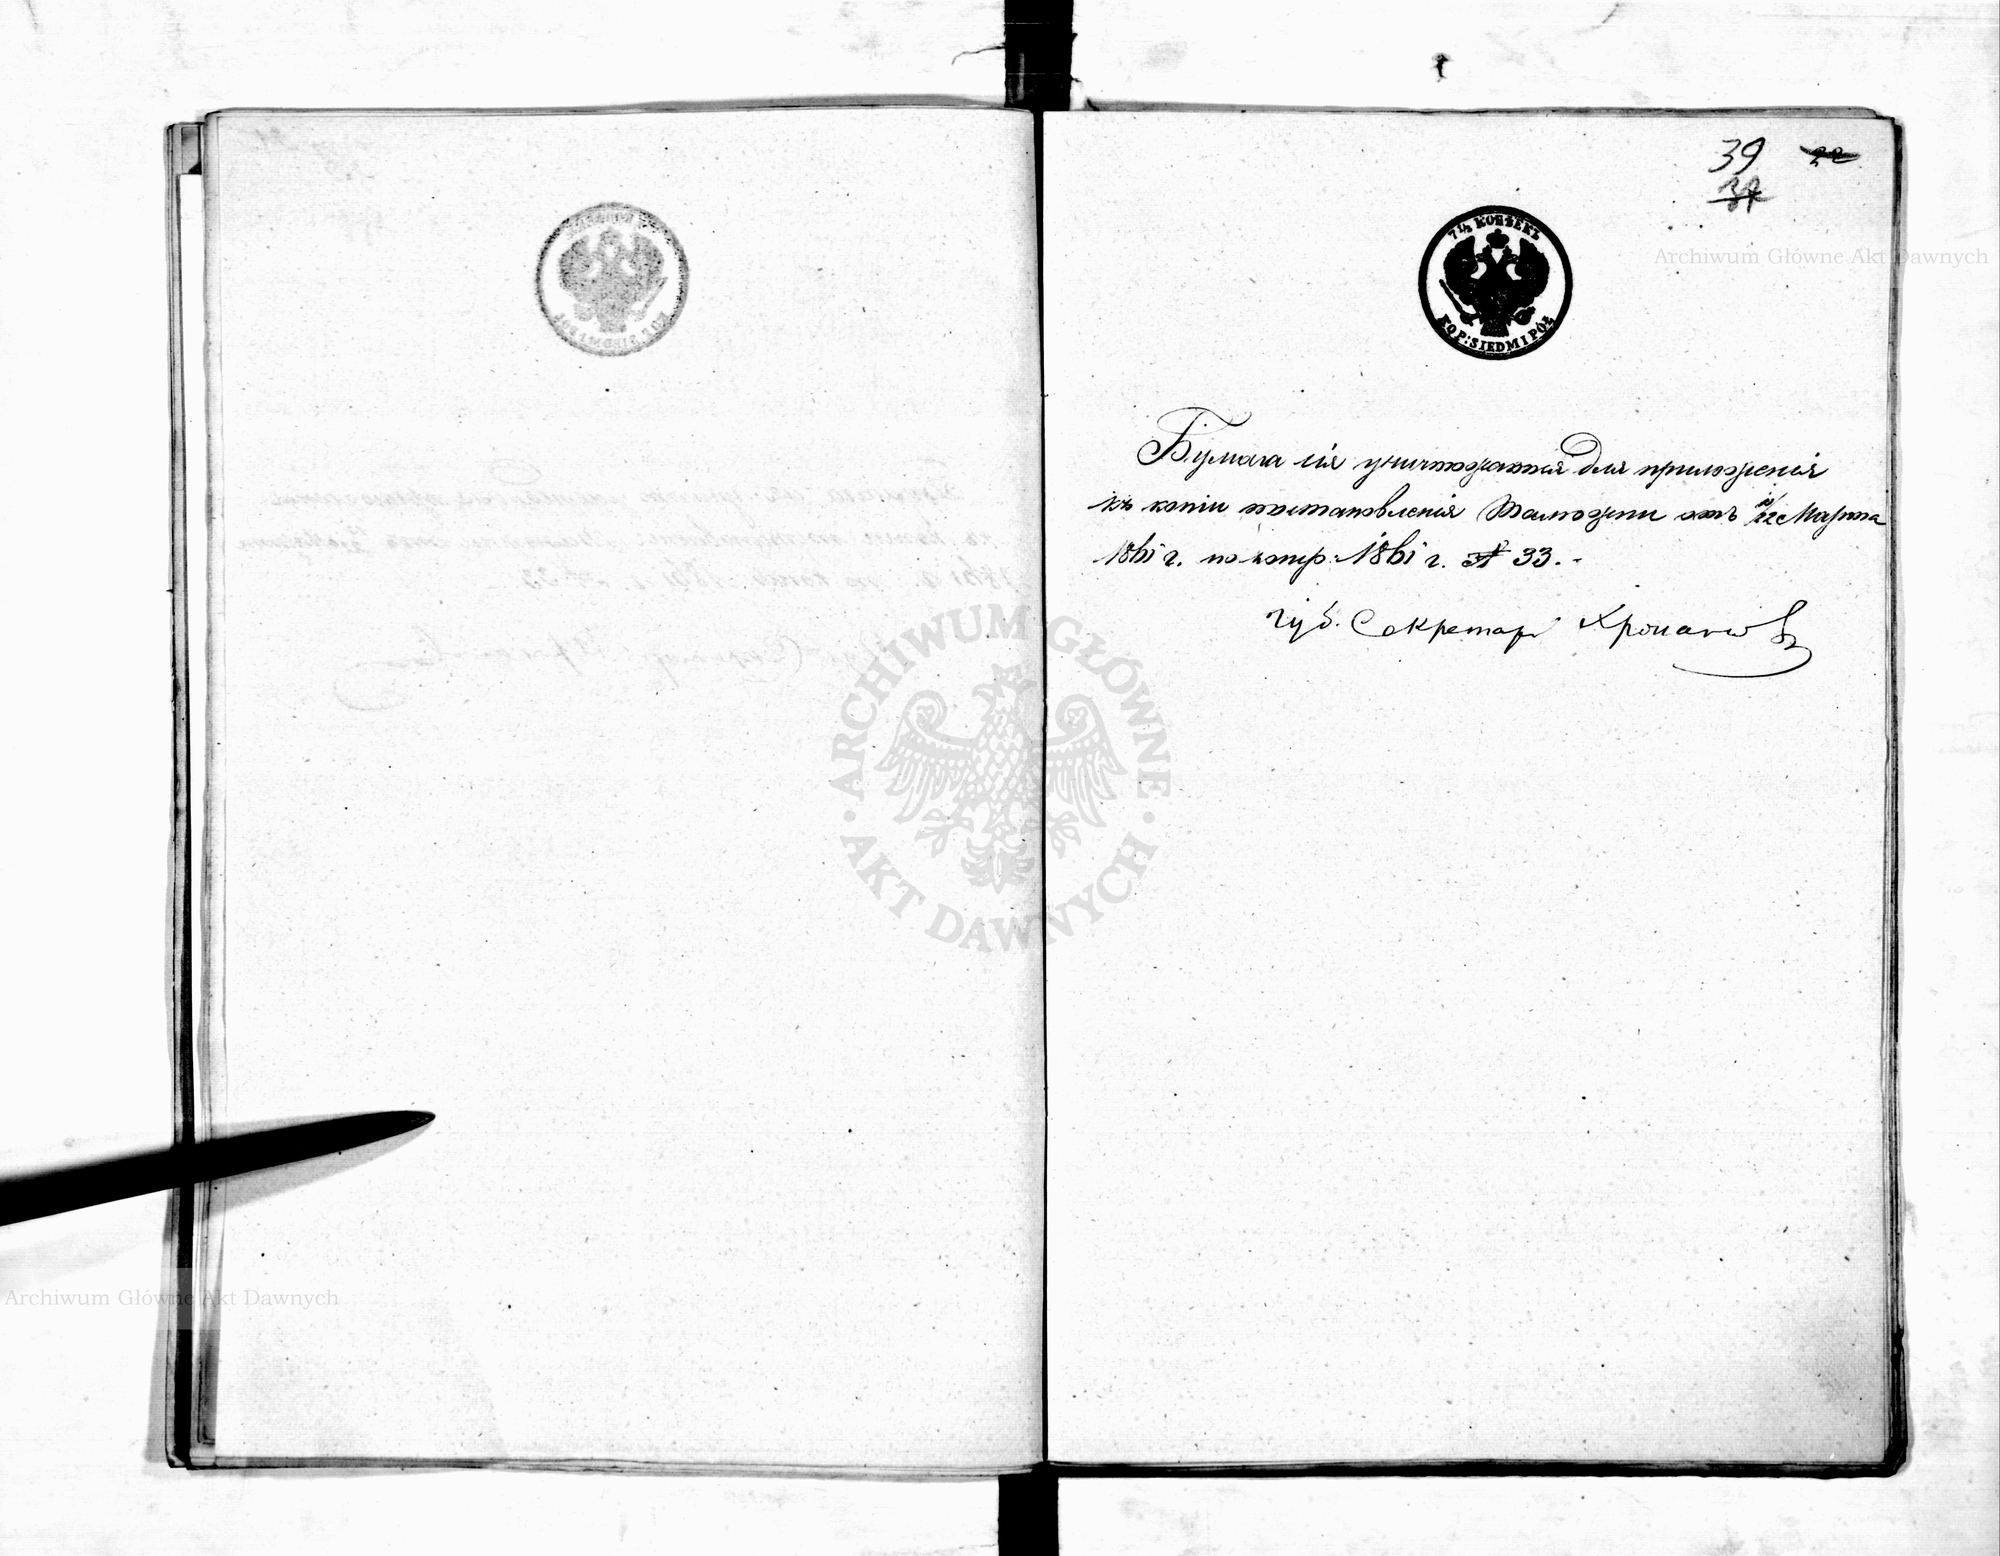 39 22
37
7½ КОПѢЕКЪ
KOP: SIEDMI PÓŁ
Archiwum Główne Akt Dawnych
Бумага сія уничтожается для приложенія
къ копіи постановленія Таможни отъ 10/22 Марта
1861 г. по контр. 1861 г. № 33. -
Губ. Секретарь
ARCHIWUM GŁÓWNE
AKT DAWNYCH
Archiwum Główne Akt Dawnych